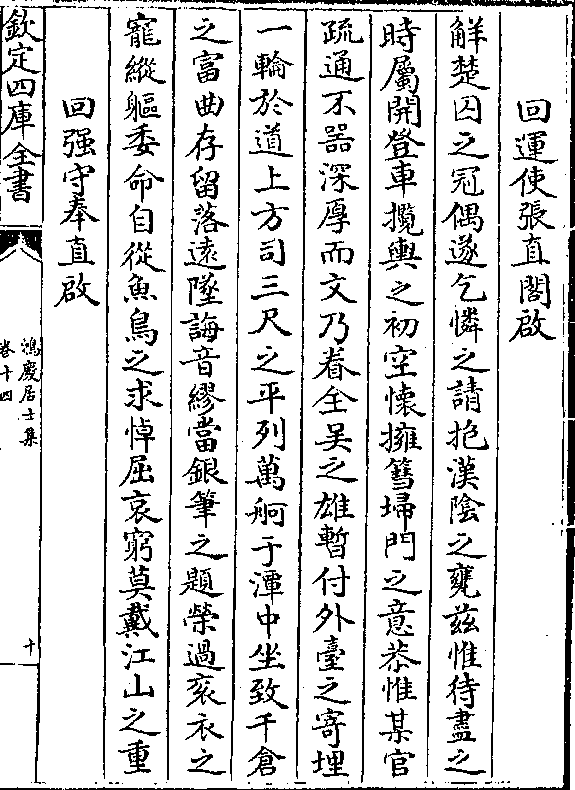 回運使張直閣啟
解楚囚之冠偶遂乞憐之請抱漢陰之甕兹惟待盡之
時屬開登車攬輿之初空懷擁篲埽門之意恭惟某官
疏通不器深厚而文乃眷全吴之雄暫付外臺之寄埋
一輪於道上方司三尺之平列萬舸于渾中坐致千倉
之富曲存留落逺墜誨音繆當銀筆之題榮過衮衣之
寵縱軀委命自從魚鳥之求悼屈哀窮莫戴江山之重
回强守奉直啟
欽定四庫全書
鴻慶居士集
卷十四
十